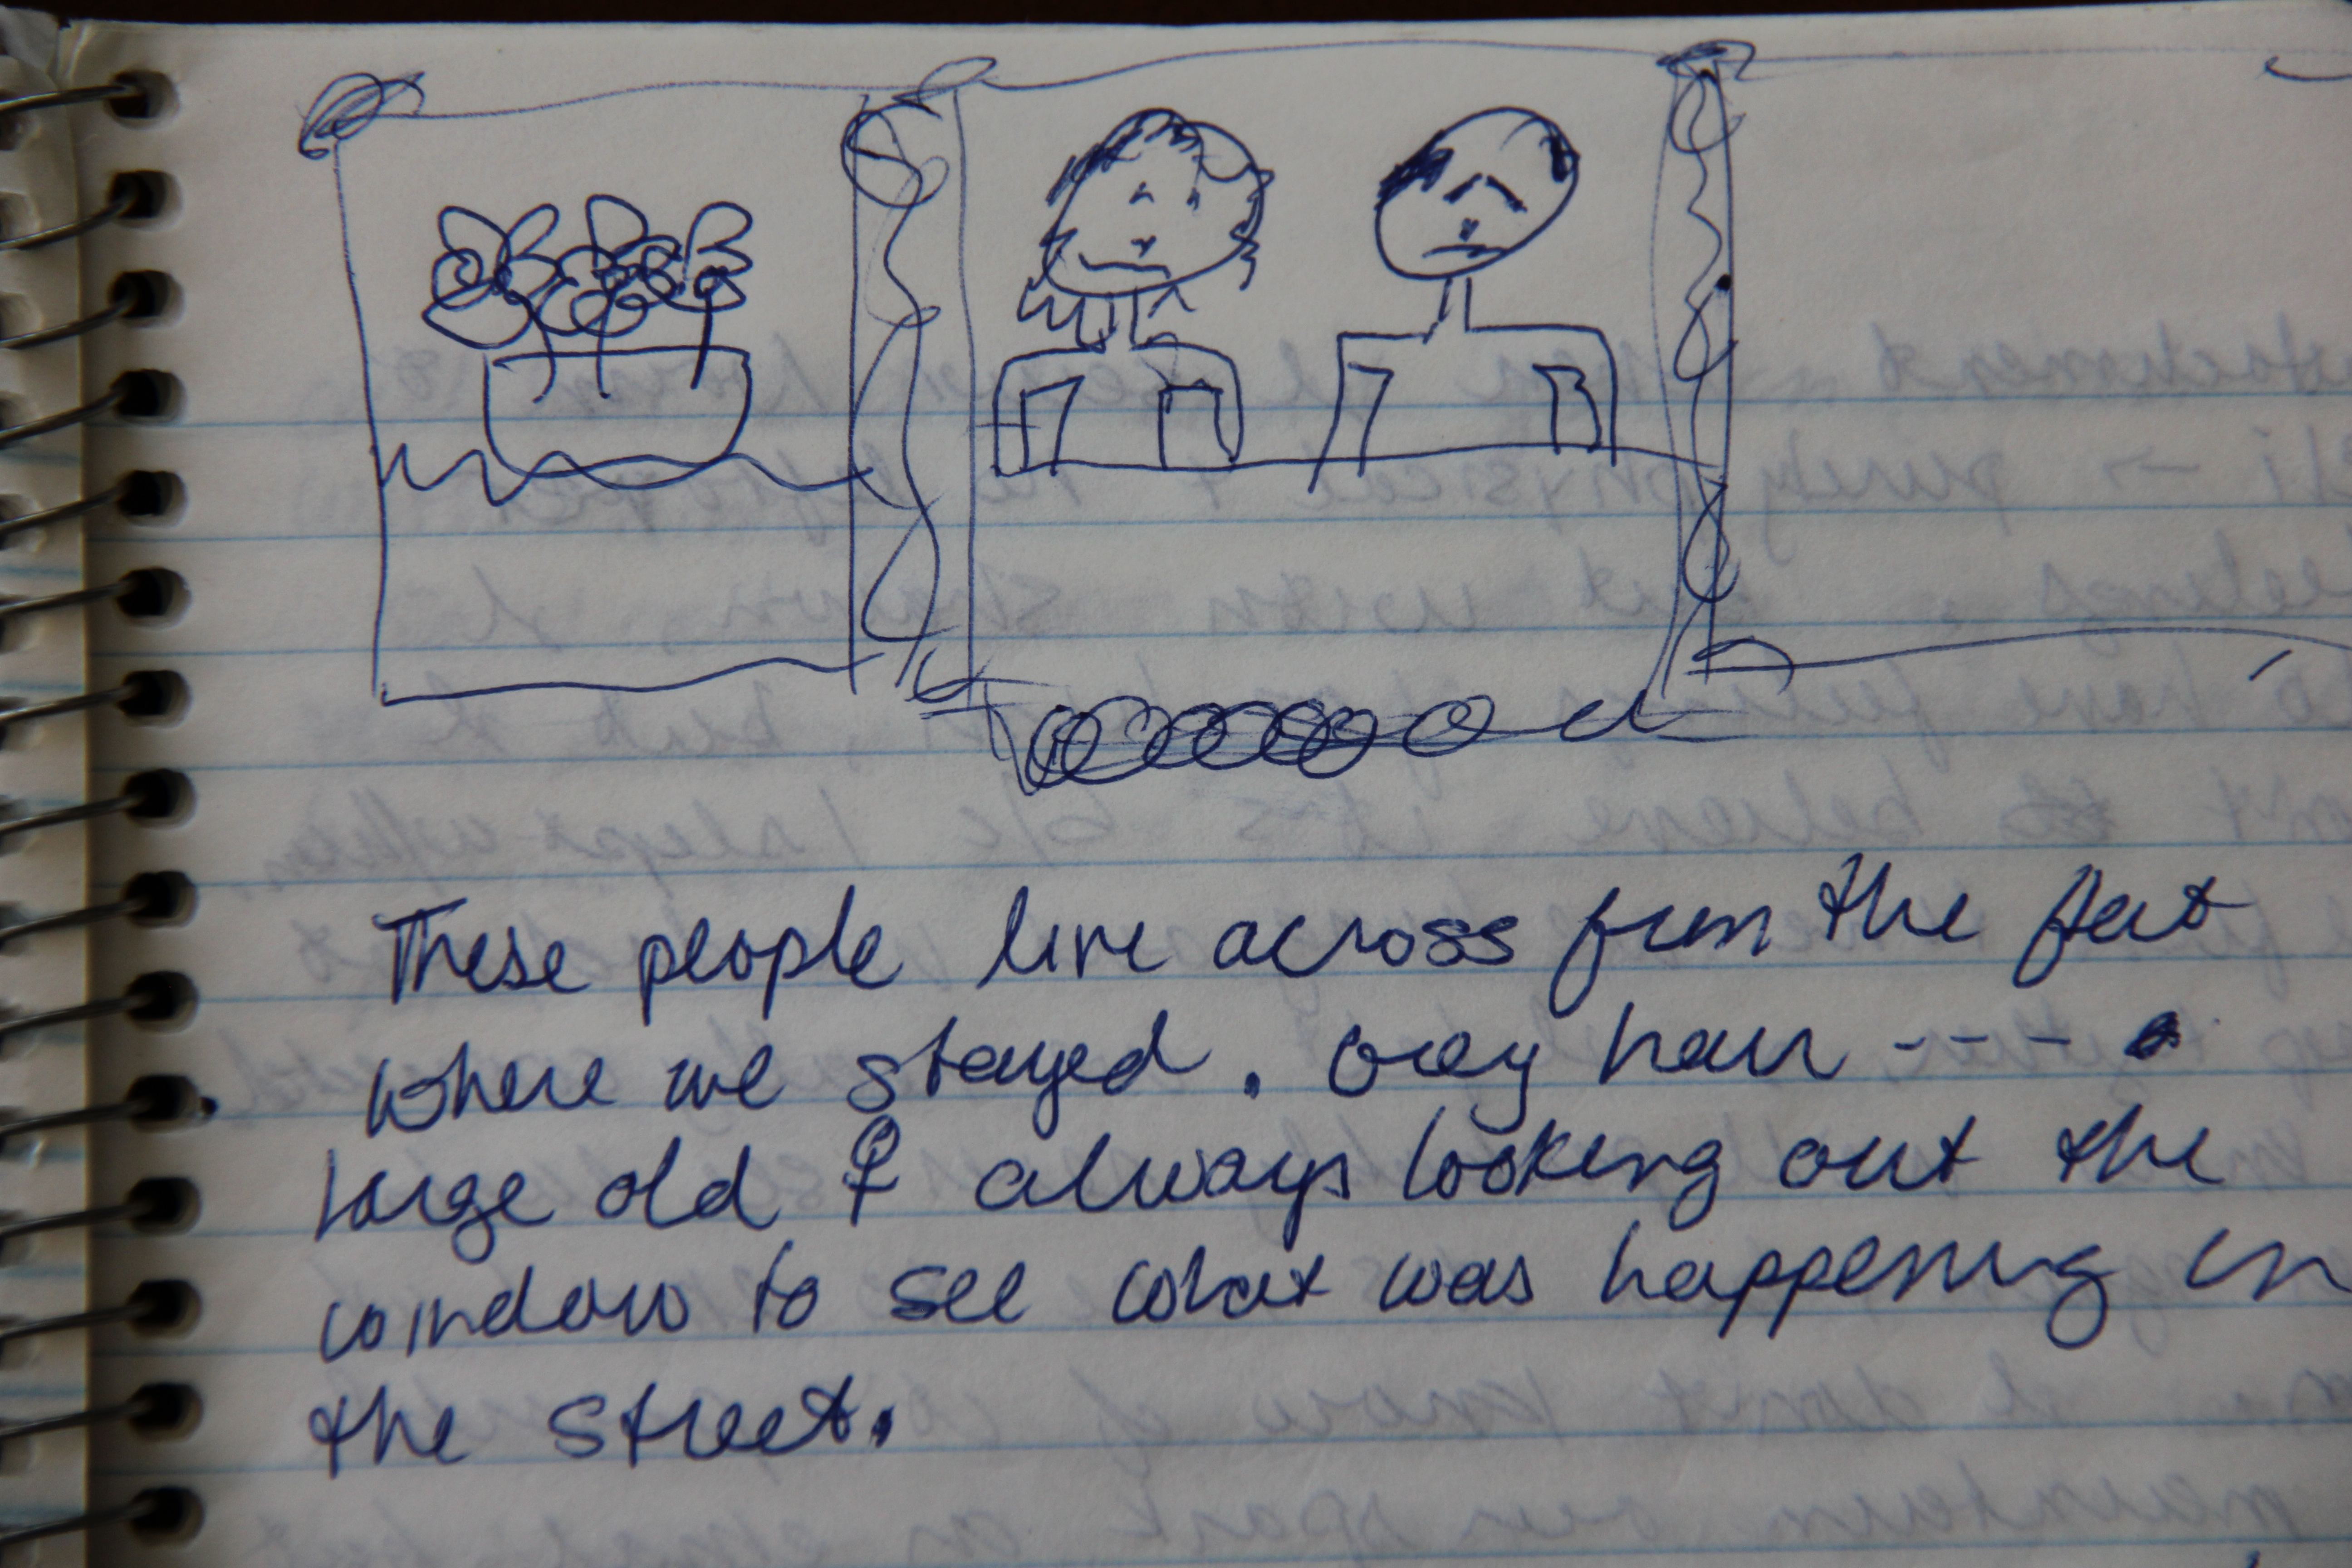 These people live across from the flat
where we stayed. Grey hair ----
large old & always looking out the
window to see what was happening in
the street.